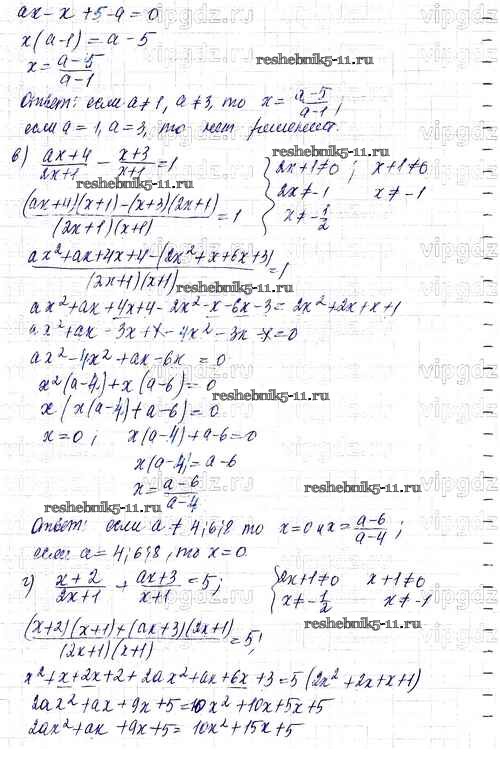 ax - x + 5 - a = 0
x(a-1) = a-5
x = (a-5)/(a-1)
reshebnik5-11.ru
Ответ: если a≠1, a≠3, то x = (a-5)/(a-1);
если a=1, a=3, то нет решения.
в) (ax+4)/(2x+1) - (x+3)/(x+1) = 1 { 2x+1≠0; x+1≠0
2x≠-1 x≠-1
x≠-1/2
reshebnik5-11.ru
((ax+4)(x+1)-(x+3)(2x+1))/((2x+1)(x+1)) = 1
(ax²+ax+4x+4-(2x²+x+6x+3))/((2x+1)(x+1)) = 1
ax²+ax+4x+4-2x²-x-6x-3 = 2x²+2x+x+1
ax²+ax-3x+1-4x²-3x-1=0
ax²-4x²+ax-6x = 0
x²(a-4)+x(a-6)=0
reshebnik5-11.ru
x(x(a-4)+a-6)=0
x=0; x(a-4)+a-6=0
x(a-4)=a-6
x = (a-6)/(a-4)
reshebnik5-11.ru
reshebnik5-11.ru
Ответ: если a≠4;6;8 то x=0 и x=(a-6)/(a-4);
если a=4;6;8, то x=0
г) (x+2)/(2x+1) + (ax+3)/(x+1) = 5; { 2x+1≠0 x+1≠0
x≠-1/2 x≠-1
reshebnik5-11.ru
((x+2)(x+1)+(ax+3)(2x+1))/((2x+1)(x+1)) = 5;
reshebnik5-11.ru
x²+x+2x+2+2ax²+ax+6x+3=5(2x²+2x+x+1)
2ax²+ax+9x+5=10x²+10x+5x+5
2ax²+ax+9x+5=10x²+15x+5
vipgdz.ru